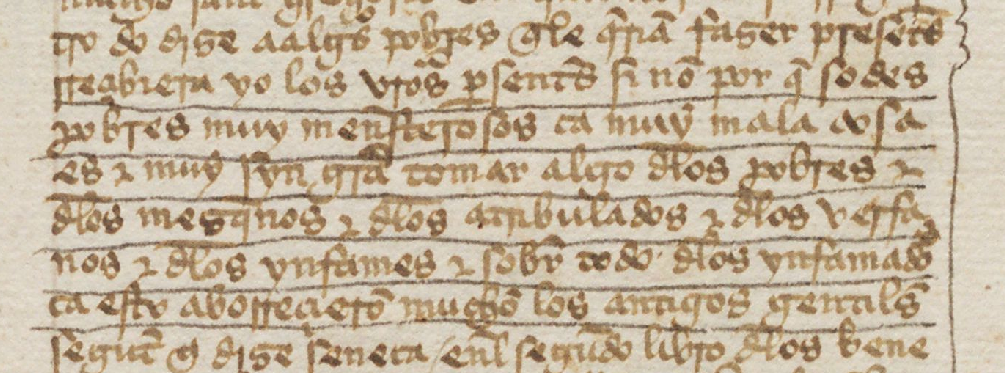 tro do dize a algũs pobres q̃le q̃riã fazer presentes
rreçibiera yo los vr̃os presentes si nõ por q̃ sodes
pobres muy menesterosos ca muy mala cosa
es & muy syn gr̃a tomar algo dlos pobres &
dlos mezq̃nos & dlos atribulados & dlos versa
nos & dlos ynfames & sobre todo dlos ynfamados
ca esto aborreçierõ mucho los antigos gentiles
segũt q̃ dize seneca enl segũdo libro dlos bene